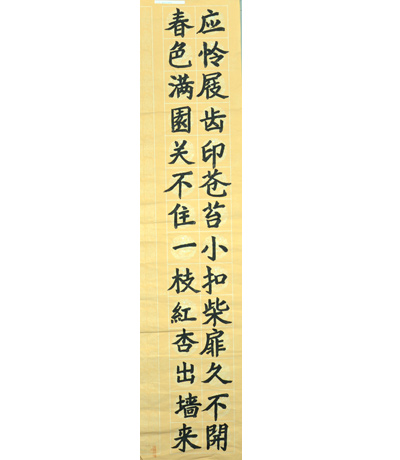 应怜屐齿印苍苔小扣柴扉久不開
春色满園关不住一枝紅杏出墙来